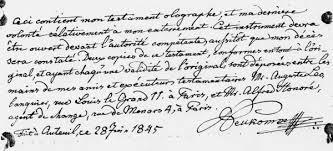 Ceci contient mon testament olographe, et ma dernière
volonté relativement à mon enterrement. Cet instrument devra
être ouvert devant l'autorité compétente, aussitôt que mon décès
sera constaté. Deux copies de ce testament, conformes en tout à l'ori-
ginal, et ayant chacune validité de l'original sont déposées entre les
mains de mes amis et exécuteurs testamentaires Mr. Auguste Le
, rue Louis le Grand 11, à Paris, et Mr. Alfred Honoré,
agent de change, rue de Menars 4, à Paris.
Fait à Auteuil, ce 28 Juin 1845
Neukomm